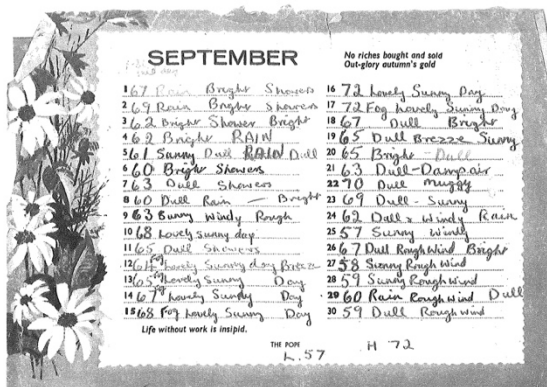 SEPTEMBER
No riches bought and sold
Out-glory autumn's gold
1 67 Rain Bright Showers
2 69 Rain Bright Showers
3 62 Bright Shower Bright
4 62 Bright RAIN
5 61 Sunny Dull RAIN Dull
6 60 Bright Showers
7 63 Dull Showers
8 60 Dull Rain — Bright
9 63 Sunny Windy Rough
10 68 Lovely Sunny day
11 65 Dull Showers
12 64 Fog Lovely Sunny day Breeze
13 65 Fog Lovely Sunny Day
14 67 Lovely Sunday Day
15 68 Fog Lovely Sunny Day
Life without work is insipid.
16 72 Lovely Sunny Day
17 72 Fog Lovely Sunny Day
18 67 Dull Bright
19 65 Dull Brezze Sunny
20 65 Bright - Dull
21 63 Dull - Damp air
22 70 Dull muggy
23 69 Dull - Sunny
24 62 Dull & Windy Rain
25 57 Sunny Windy
26 67 Dull Rough Wind Bright
27 58 Sunny Rough Wind
28 59 Sunny Rough Wind
29 60 Rain Rough Wind Dull
30 59 Dull Rough Wind
THE POPE
L. 57 H 72